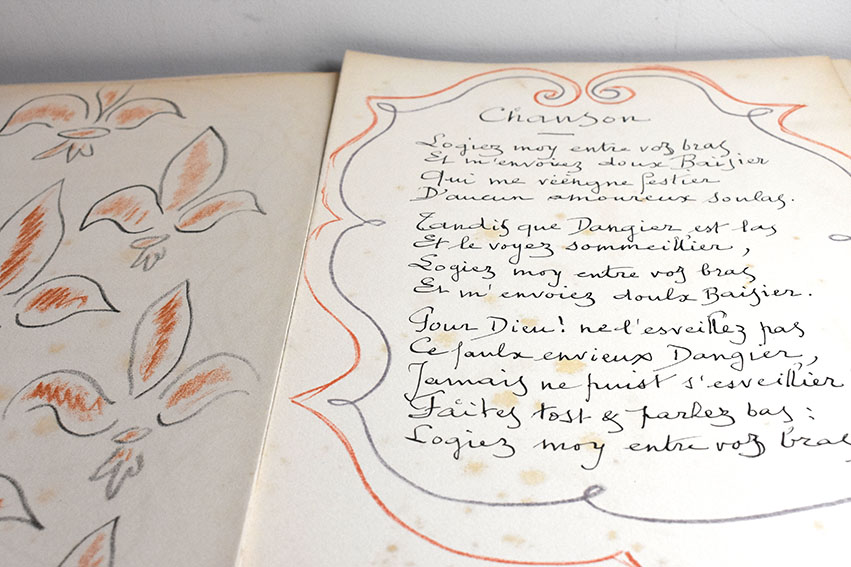 Chanson
Logiez moy entre voz bras
Et m'envoiez doux Baisier
Qui me viengne festier
D'aucun amoureux soulas.
Tandis que Dangier est las
Et le voyez sommeillier,
Logiez moy entre voz bras
Et m'envoiez doulx Baisier.
Pour Dieu! ne l'esveillez pas
Ce faulx envieux Dangier,
Jamais ne puist s'esveillier
Faites tost & parlez bas:
Logiez moy entre voz bras